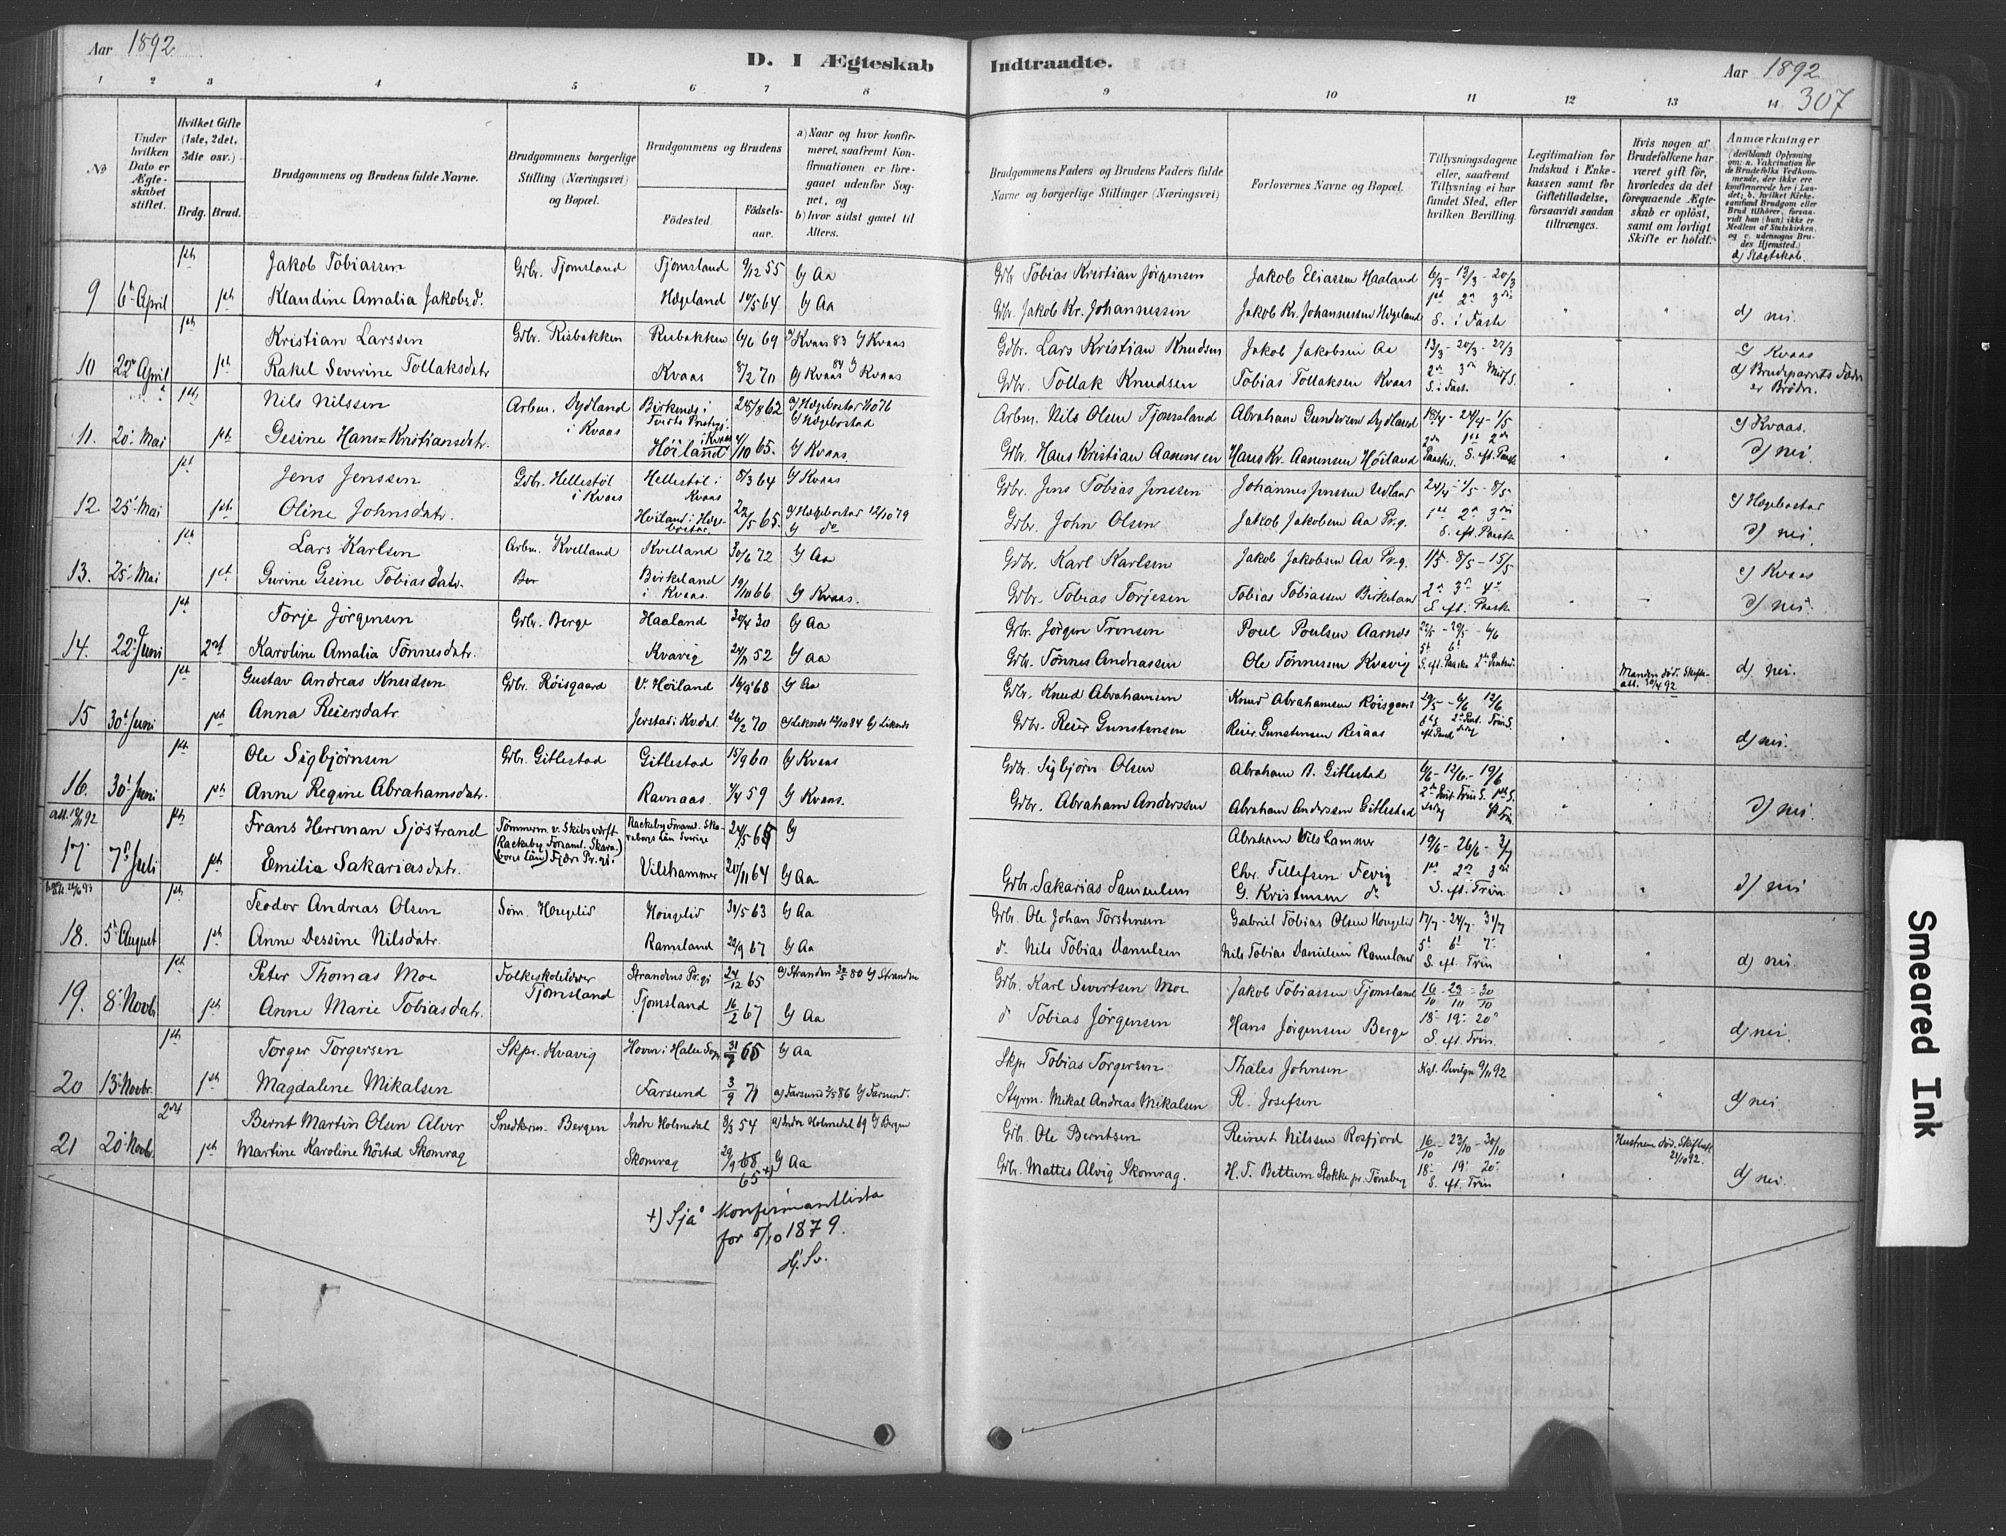 Aar 1892
D. I Ægteskab Indtraadte.
Aar 1892
307
1 2 3 4 5 6 7 8 9 10 11 12 13 14
No
Under hvilken Dato er Ægteskabet stiftet.
Hvilket Gifte (1ste, 2det, 3die osv.)
Brdg. Brud.
Brudgommens og Brudens fulde Navne.
Brudgommens borgerlige Stilling (Næringsvei) og Bopæl.
Brudgommens og Brudens
Födested.
Födselsaar.
a) Naar og hvor konfirmeret, saafremt Konfirmationen er foregaaet udenfor Sognet, og
b) hvor sidst gaaet til Alters.
Brudgommens Faders og Brudens Faders fulde Navne og borgerlige Stillinger (Næringsvei)
Forlovernes Navne og Bopæl.
Tillysningsdagene eller, saafremt Tillysning ei har fundet Sted, efter hvilken Bevilling.
Legitimation for Indskud i Enkekassen samt for Giftetilladelse, forsaavidt saadan tiltrænges.
Hvis nogen af Brudefolkene har været gift för, hvorledes da det foregaaende Ægteskab er oplöst, samt om lovligt Skifte er holdt.
Anmærkninger
(deriblandt Oplysning om: a. Vakcination for de Brudefolks Vedkommende, der ikke ere konfirmerede her i Landet; b. hvilket Kirkesamfund Brudgom eller Brud tilhörer, forsaavidt han (hun) ikke er Medlem af Statskirken, og c. udensogns Brudes Hjemsted.)
d) Slægtskab.
9 6te April 1ste Jakob Tobiassen Gdbr. Tjomsland Tjomsland 9/12 55 b) Aa Gdbr. Tobias Kristian Jörgensen Jakob Eliassen Haaland 6/3 - 13/3 - 20/3
1ste Klaudine Amalia Jakobsd. Hægeland 10/5 64 b) Aa Gdbr. Jakob Kr. Johannessen Jakob Kr. Johannessen Hægeland 1ste 2n 3die S. i Faste d) nei.
10 22n April 1ste Kristian Larssen Gdbr. Risbakken Risbakken 6/6 69 a) Kvaas 83 b) Kvaas Gdbr. Lars Kristian Knudsen Jakob Jakobsen Aa 13/3 - 20/3 - 27/3 c) Kvaas
1ste Rakel Severine Tollaksdatr Kvaas 8/2 70 a) Kvaas 84 b) Kvaas Gdbr. Tollak Knudsen Tobias Tollaksen Kvaas 2n 3n Mid S. S. i Fast. d) Brudeparrets Fædre er Brødre.
11. 20de Mai 1ste Nils Nilssen Arbm. Dydland i Kvaas Birkenes i Tveits Prestegj. 25/8 62 a) Hægebostad 1/10 76 b) Hægebostad Arbm. Nils Olsen Tjomsland Abraham Gundersen Dydland 18/4 - 24/4 - 1/5 c) Kvaas.
1ste Gesine Hans=Kristiansdatr. Höiland i Kvaas 4/10 65. b) Kvaas. Gdbr. Hans Kristian Aanensen Hans Kr. Aanensen Höiland 2den Paaskd. 1ste 2den S. eft. Paaske d) nei.
12. 25de Mai 1ste Jens Jenssen Gdbr. Hellestöl i Kvaas Hellestöl i Kvaas 8/3 64 b) Kvaas Gdbr. Jens Tobias Jenssen Johannes Jenssen Udland 24/4 - 1/5 - 8/5 c) Hægebostar
1ste Oline Johnsdatr. Höiland i Hægebostar 22/5 65. a) Hægebostar 12/10 79 b) do Gdbr. John Olsen Jakob Jakobsen Aa Pr.g. 1ste 2n 3die S. eft. Paaske d) nei.
13. 25de Mai 1ste Lars Karlsen Arbm. Kvelland Kvelland 30/6 72 b) Aa Gdbr. Karl Karlsen Jakob Jakobsen Aa Pr.g. 1/5 - 8/5 - 15/5 c) Kvaas
1ste Gurine Gesine Tobiasdatr. Birkeland i Kvaas. 19/10 66 b) Kvaas. Gdbr. Tobias Torjesen Tobias Tobiassen Birkeland 2n 3n 4n S. eft. Paaske d) nei.
14. 22de Juni 1ste Torje Jörgensen Gdbr. Berge Haaland 30/4 30 b) Aa Gdbr. Jörgen Tronsen Poul Poulsen Aarnes 22/5 - 29/5 - 6/6
2det Karoline Amalia Tönnesdatr. Kvavig 24/11 52 b) Aa Gdbr. Tönnes Andreassen Ole Tönnesen Kvavig 5t 6t S. eft. Paaske 2n Pinsed. Manden död. Skifteatt. 30/4 92 d) nei.
15 30te Juni 1ste Gustav Andreas Knudsen Gdbr. Röisgaard V. Höiland 16/9 68 b) Aa Gdbr. Knud Abrahamsen Knud Abrahamsen Röisgaard 29/5 - 6/6 12/6
1ste Anna Reiersdatr Jerstad i Kvdal 26/2 70 a) Liknes 12/10 84 b) Liknes Gdbr. Reier Gunstensen Reier Gunstensen Resaas d) nei.
16. 30te Juni 1ste Ole Sigbjörnsen Gdbr. Gitlestad Gitlestad 15/9 60 b) Kvaas Gdbr. Sigbjörn Olsen Abraham A. Gitlestad 6/6 - 12/6 - 19/6
1ste Anne Regine Abrahamsdatr. Ravnaas. 4/4 59 b) Kvaas. Gdbr. Abraham Anderssen Abraham Anderssen Gitlestad d) nei.
17 7de Juli 1ste Frans Herrman Sjöstrand Tömmerm. v. Skibsværft (Rackeby Forsaml. Skaraborgs Län) Fjære Pr.gj. Rackeby Forsaml. Skaraborgs Län Sverige 24/5 65 b) Abraham Vilshammer 19/6 - 26/6 - 3/7
1ste Emilia Sakariasdatr. Vilshammer 20/11 64 b) Aa Gdbr. Sakarias Samuelsen Chr. Tillefsen Fevig G. Kristensen do 1ste 2n 3die S. eft. Trin d) nei
18. 5te August 1ste Teodor Andreas Olsen Söm. Hougelid Hougelid 31/5 63 b) Aa Gdbr. Ole Johan Torstensen Gabriel Tobias Olsen Hougelid 17/7 - 24/7 - 31/7
1ste Anne Dessine Nilsdatr. Ramsland 20/9 67 b) Aa do Nils Tobias Danielsen Nils Tobias Danielsen Ramsland 5te 6te 7de S. eft. Trin d) nei.
19. 8de Novbr 1ste Peter Thomas Moe Folkeskolelærer Tjomsland Strandens Pr.gj 24/12 65 a) Stranden 80 b) Stranden Gdbr. Karl Sivertsen Moe Jakob Tobiassen Tjomsland 16/10 - 23/10 - 30/10
1ste Anne Marie Tobiasdatr. Tjomsland 16/2 67 b) Aa do Tobias Jörgensen Hans Jörgensen Berge 18de 19de 20de S. eft. Trin. d) nei.
20 13de Novbr. 1ste Torger Torgersen Skpr. Kvavig Hoven i Halse Sogn 31/7 65 b) Aa Skpr Tobias Torgersen Thales Johnsen Kgl. Bevilgn 9/11 92
1ste Magdalene Mikalsen Farsund 3/9 71 a) Farsund 86 b) Farsund. Styrm. Mikal Andreas Mikalsen R. Josefsen d) nei.
21 20de Novbr. 2det Bernt Martin Olsen Alver Snedkerm. Bergen Indre Holmedal 8/3 54 a) Indre Holmedal 69 b) Bergen Gdbr. Ole Berntsen Reinert Nilssen Rosfjord 16/10 - 23/10 - 30/10 Hustruen död. Skifteatt 21/10 92.
1ste Martine Karoline Nösted Skomrag Skomrag 29/9 68 65 +) b) Aa Gdbr. Mattes Alvig Skomrag. H. T. Bettum Stokke pr. Tönsberg 18de 19de 20de S. eft. Trin d) nei.
+) Sjå konfirmantlista
for 5/10 1879.
Hj. Sv.
Smeared Ink